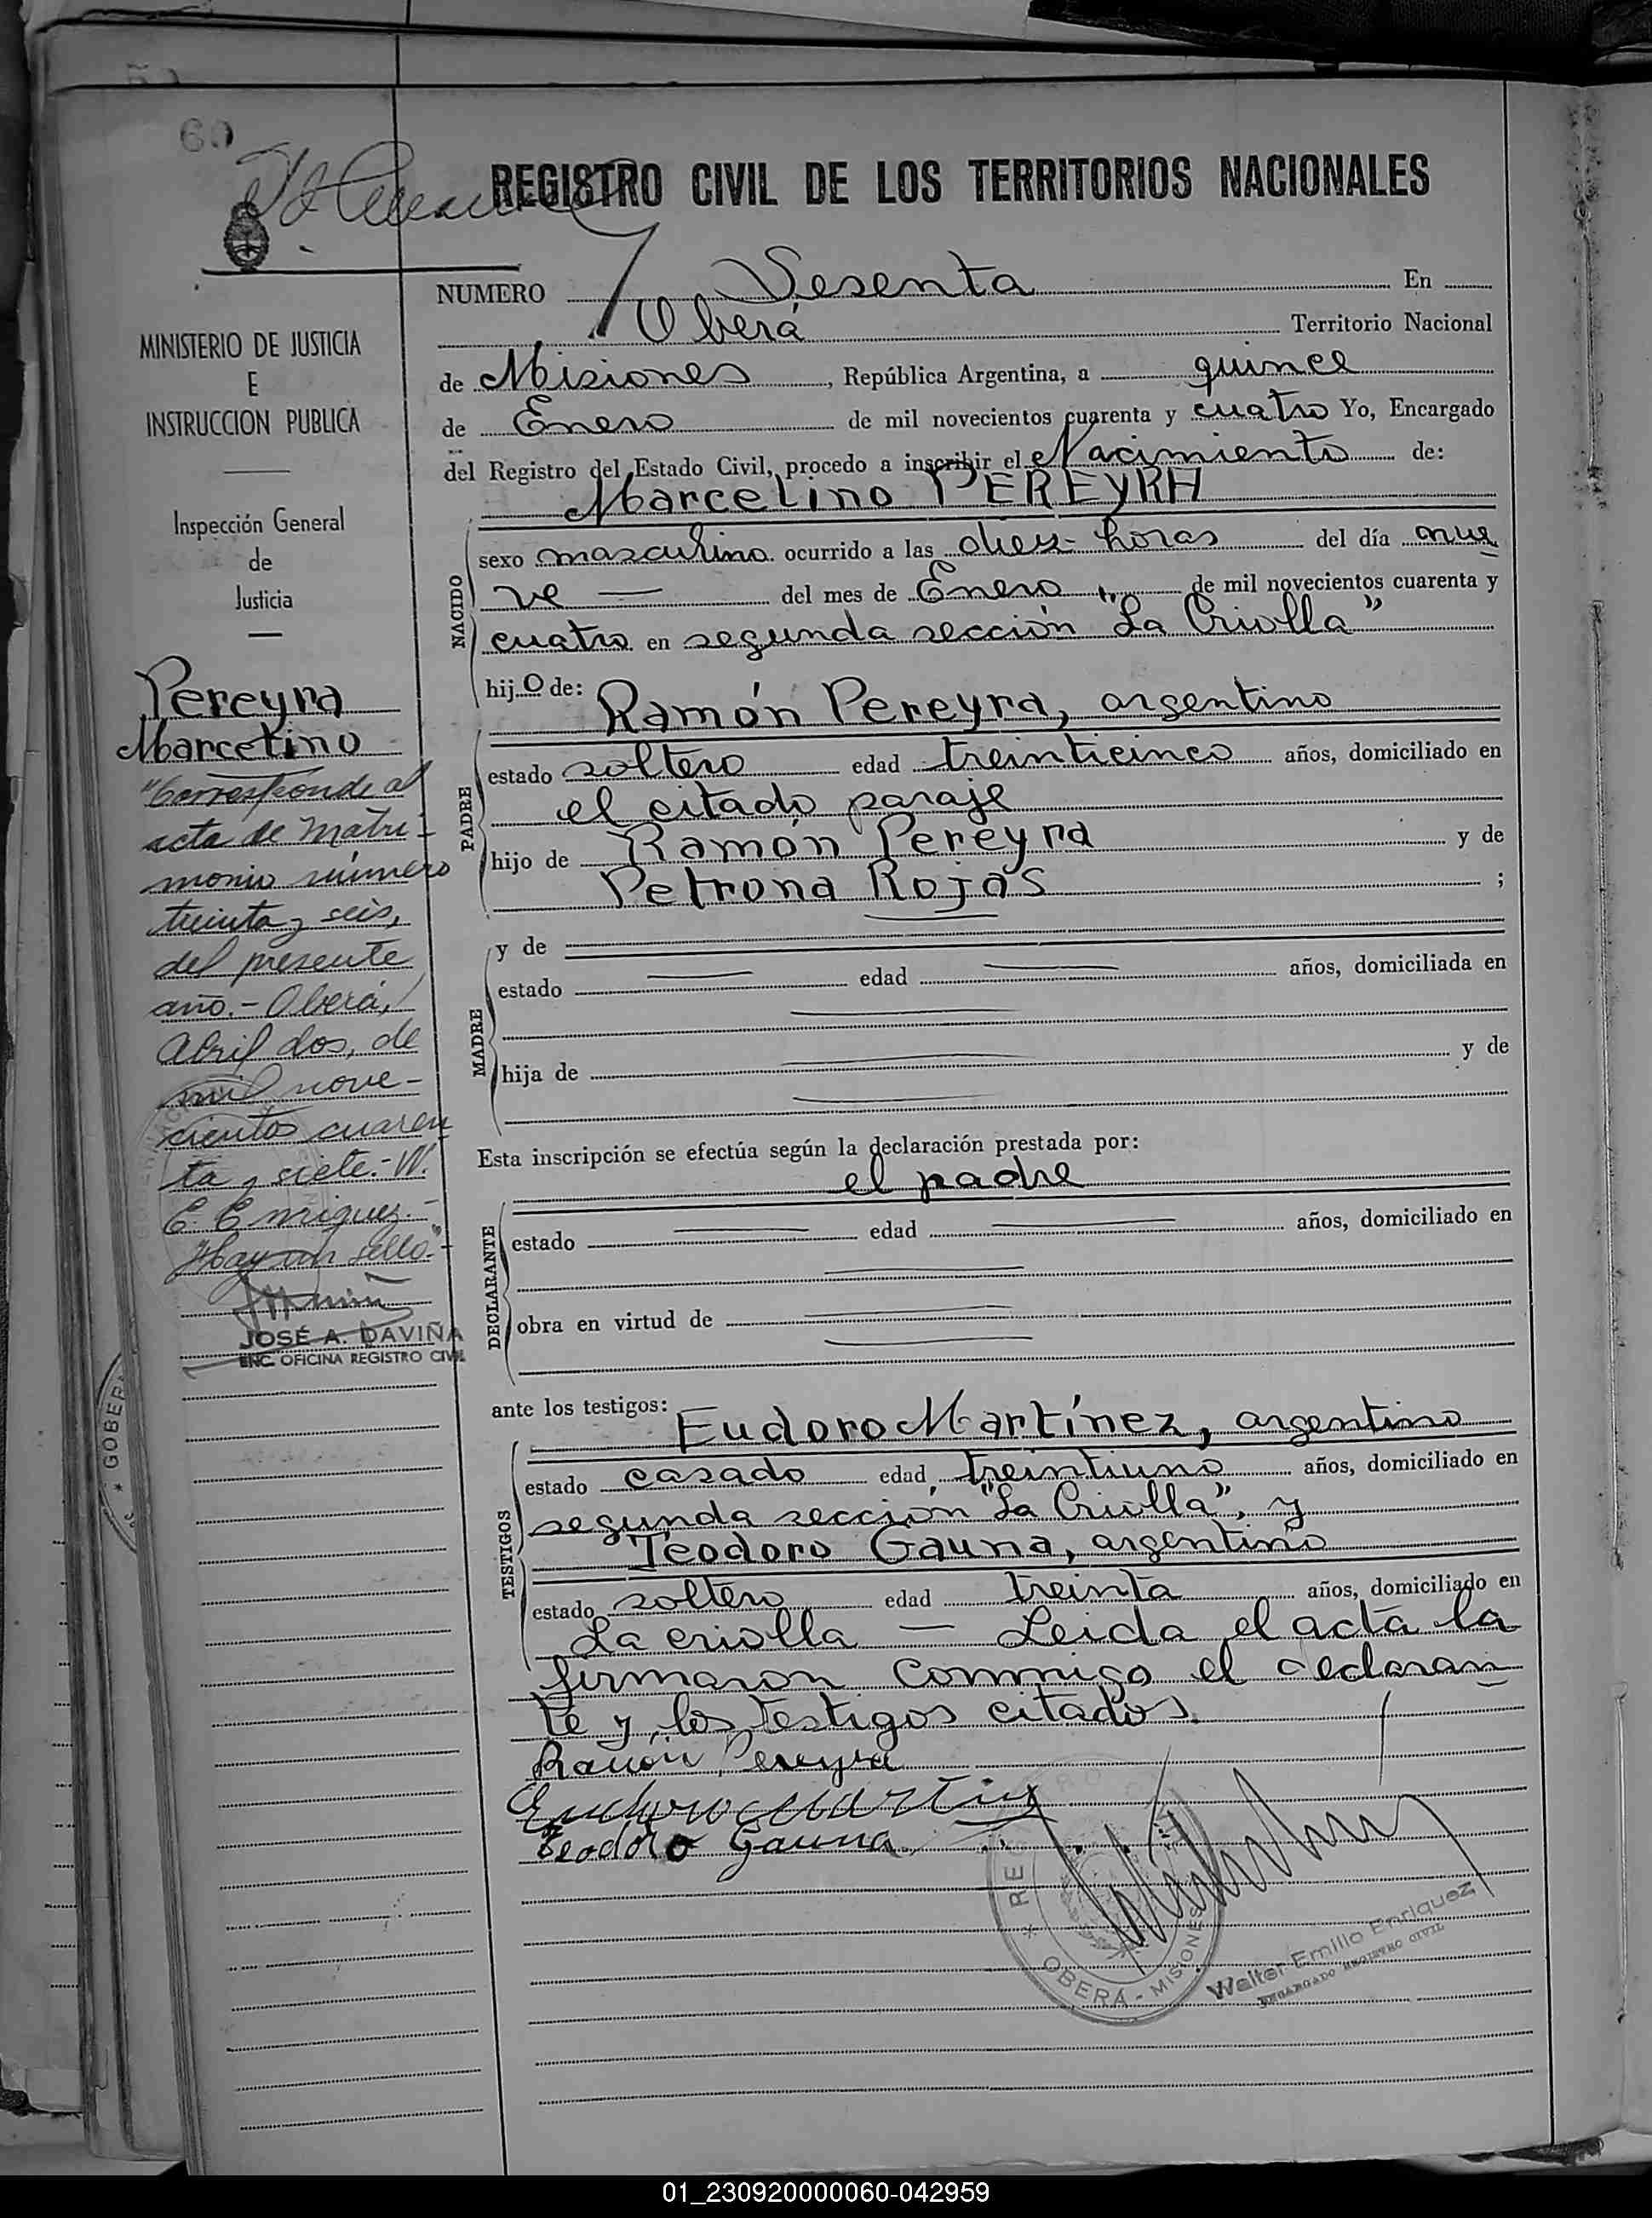 60
REGISTRO CIVIL DE LOS TERRITORIOS NACIONALES
MINISTERIO DE JUSTICIA
E
INSTRUCCION PUBLICA
Inspección General
de
Justicia
Pereyra
Marcelino
"Corresponde al
acta de Matri-
monio número
treinta y seis,
del presente
año.- Oberá,
Abril dos, de
mil nove-
cientos cuaren
ta y siete.- W.
E. Enriquez.-
Hay un sello."-
JOSÉ A. DAVIÑA
ENC. OFICINA REGISTRO CIVIL
NUMERO Sesenta En
Oberá Territorio Nacional
de Misiones, República Argentina, a quince
de Enero de mil novecientos cuarenta y cuatro Yo, Encargado
del Registro del Estado Civil, procedo a inscribir el Nacimiento de:
Marcelino PEREYRA
NACIDO
sexo masculino ocurrido a las diez horas del día nue
ve — del mes de Enero de mil novecientos cuarenta y
cuatro en segunda sección "La Criolla"
hijo de:
Ramón Pereyra, argentino
PADRE
estado soltero edad treinticinco años, domiciliado en
el citado paraje
hijo de Ramón Pereyra y de
Petrona Rojas ;
MADRE
y de
estado edad años, domiciliada en
hija de y de
Esta inscripción se efectúa según la declaración prestada por:
el padre
DECLARANTE
estado edad años, domiciliado en
obra en virtud de
ante los testigos:
Eudoro Martínez, argentino
TESTIGOS
estado casado edad treintiuno años, domiciliado en
segunda sección "La Criolla", y
Teodoro Gauna, argentino
estado soltero edad treinta años, domiciliado en
La criolla — Leida el acta la
firmaron conmigo el declaran
te y los testigos citados.
Ramón Pereyra
Teodoro Gauna
OBERÁ - MISIONES
Walter Emilio Enriquez
ENCARGADO REGISTRO CIVIL
* GOBER
01_230920000060-042959